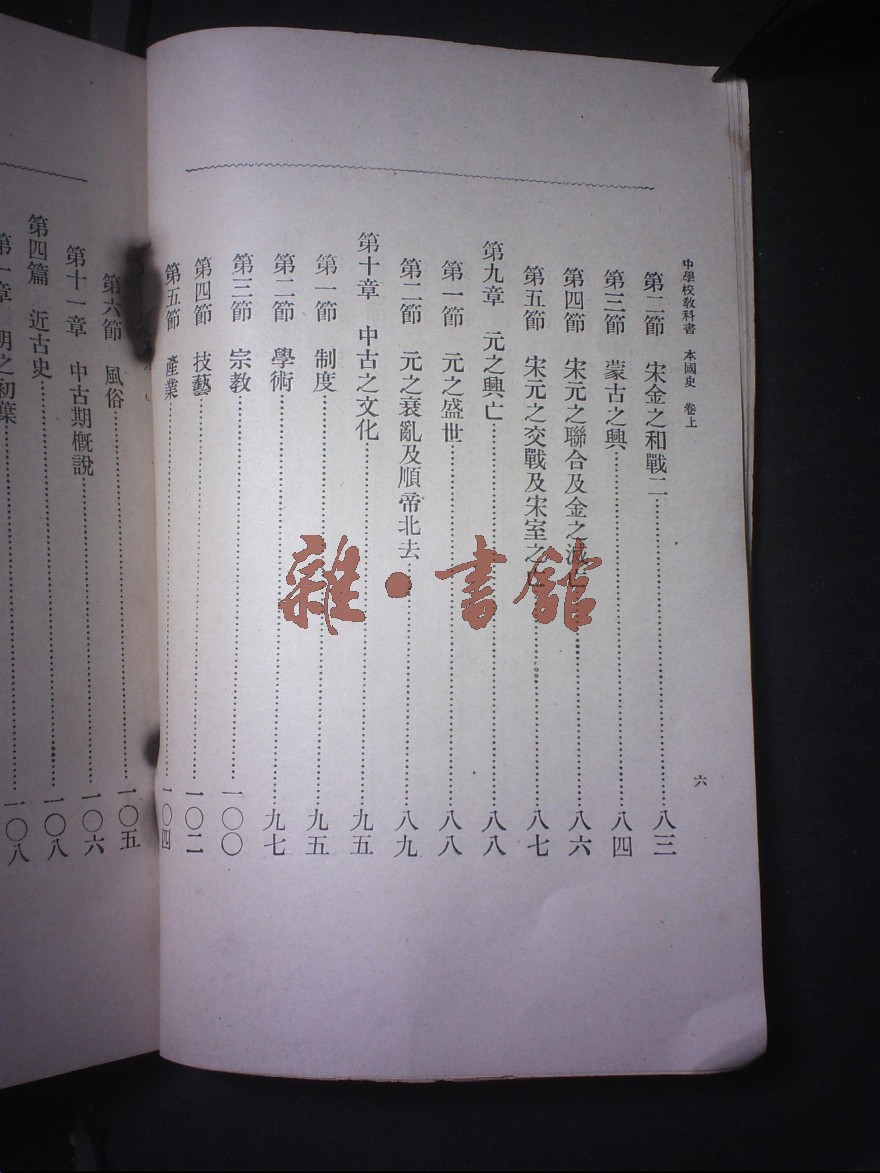 中學校教科書 本國史 卷上
六
第二節 宋金之和戰二 八三
第三節 蒙古之興 八四
第四節 宋元之聯合及金之滅 八六
第五節 宋元之交戰及宋室之 八七
第九章 元之興亡 八八
第一節 元之盛世 八八
第二節 元之衰亂及順帝北去 八九
第十章 中古之文化 九五
第一節 制度 九五
第二節 學術 九七
第三節 宗教 一〇〇
第四節 技藝 一〇二
第五節 產業 一〇四
第六節 風俗 一〇五
第十一章 中古期概說 一〇六
第四篇 近古史 一〇八
第一章 明之初葉 一〇八
雜·書館